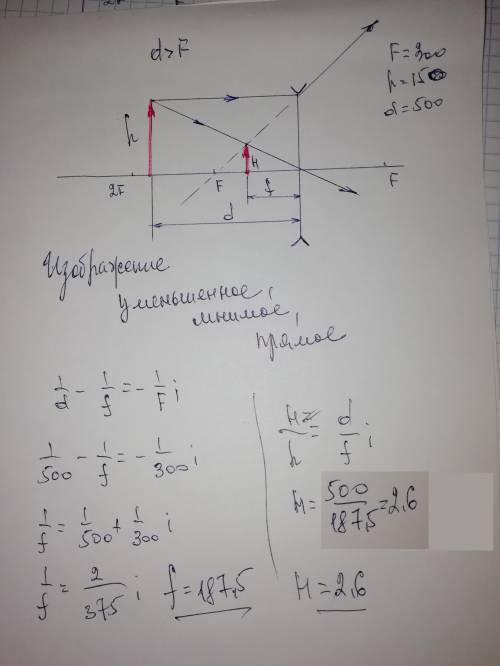 d>F
F=300
h=150
d=500
h
H
2F
F
f
F
d
Изображение
уменьшенное,
мнимое,
прямое
1/d - 1/f = - 1/F;
1/500 - 1/f = - 1/300;
1/f = 1/500 + 1/300;
1/f = 2/375; f=187,5
H/h = d/f;
H= 500/187,5 =2,6
H=2,6